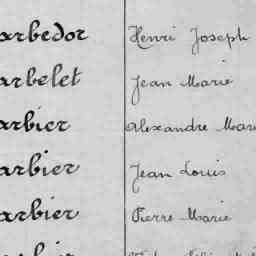 arbedor Henri Joseph
arbelet Jean Marie
arbier Alexandre Mari
arbier Jean Louis
arbier Pierre Marie